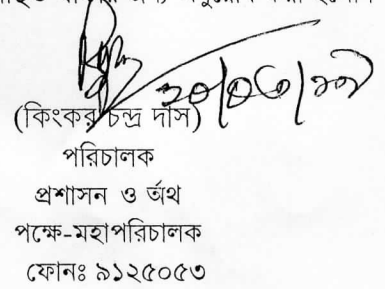 (কিংকর চন্দ্র দাস)
পরিচালক
প্রশাসন ও র্অথ
পক্ষে-মহাপরিচালক
ফোনঃ ৯১২৫০৫৩